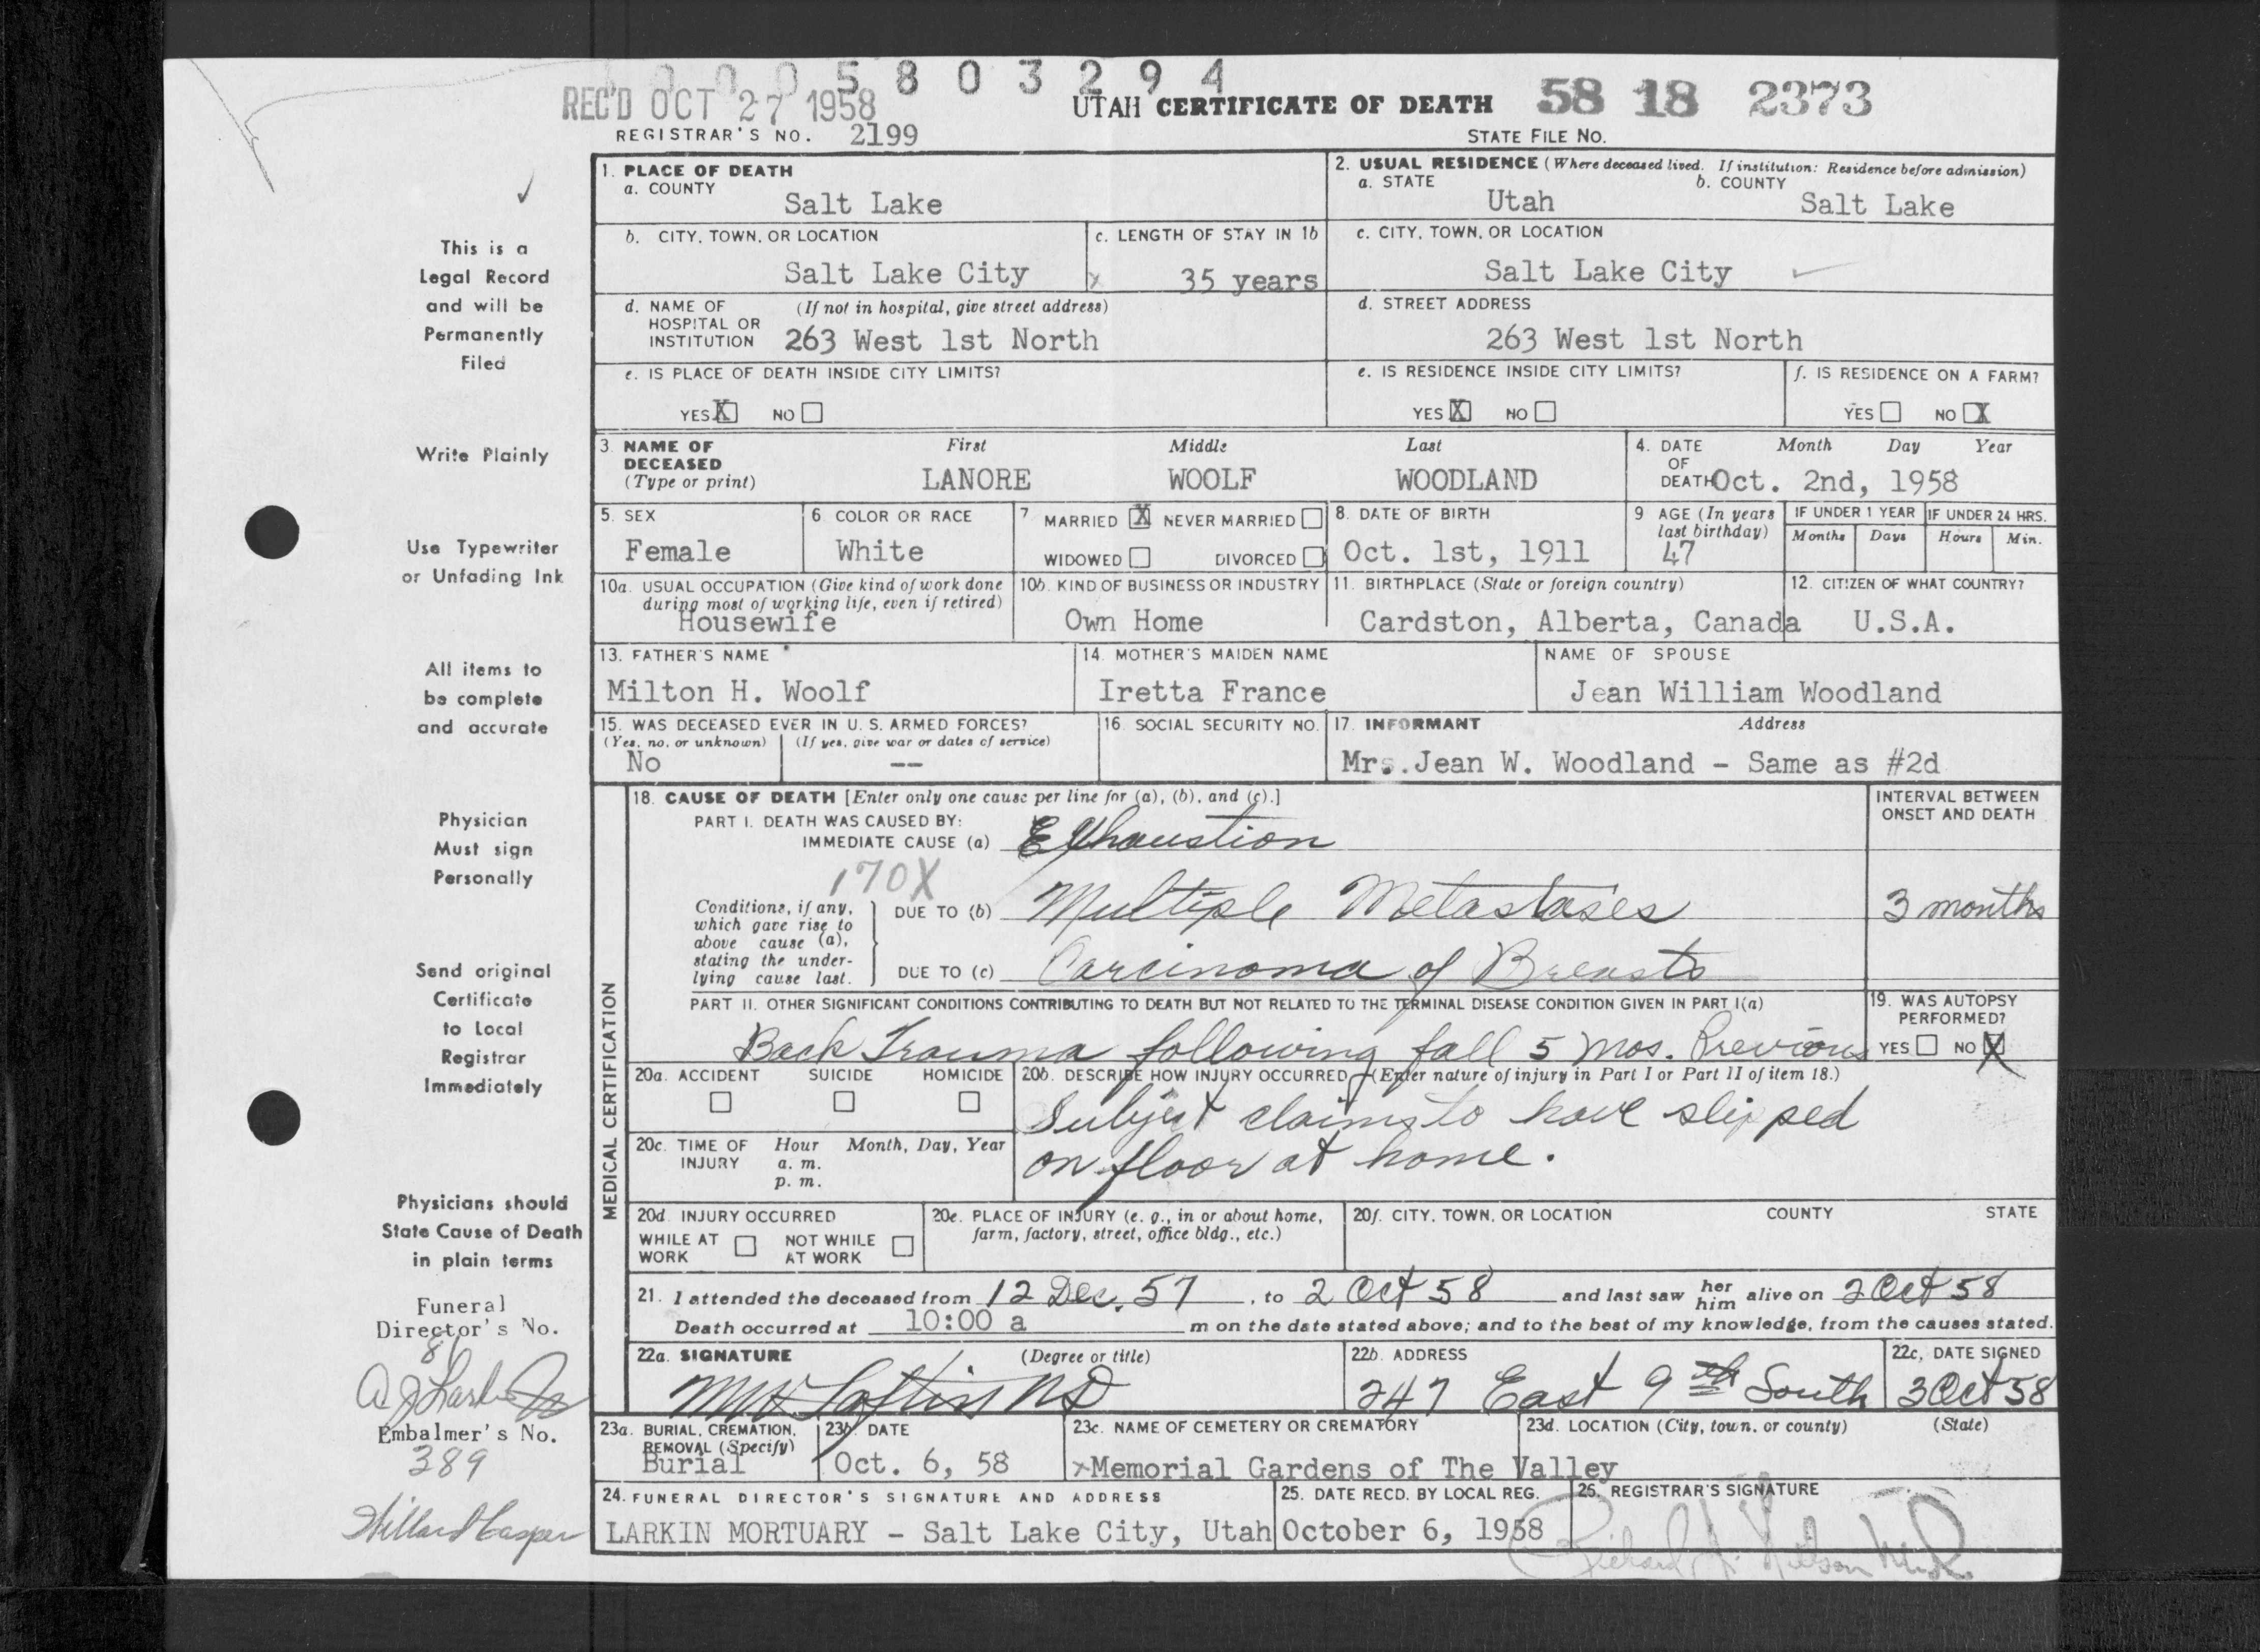 0 0 0 5 8 0 3 2 9 4
REC'D OCT 27 1958
UTAH CERTIFICATE OF DEATH 58 18 2373
REGISTRAR'S NO. 2199 STATE FILE NO.
This is a
Legal Record
and will be
Permanently
Filed
Write Plainly
Use Typewriter
or Unfading Ink
All items to
be complete
and accurate
Physician
Must sign
Personally
Send original
Certificate
to Local
Registrar
Immediately
Physicians should
State Cause of Death
in plain terms
Funeral
Director's No.
Embalmer's No.
389
Willard Casper
1. PLACE OF DEATH
a. COUNTY
Salt Lake
2. USUAL RESIDENCE (Where deceased lived. If institution: Residence before admission)
a. STATE b. COUNTY
Utah Salt Lake
b. CITY, TOWN, OR LOCATION
Salt Lake City
c. LENGTH OF STAY IN 1b
x 35 years
c. CITY, TOWN, OR LOCATION
Salt Lake City
d. NAME OF (If not in hospital, give street address)
HOSPITAL OR
INSTITUTION 263 West 1st North
d. STREET ADDRESS
263 West 1st North
e. IS PLACE OF DEATH INSIDE CITY LIMITS?
YES X NO
e. IS RESIDENCE INSIDE CITY LIMITS?
YES X NO
f. IS RESIDENCE ON A FARM?
YES NO X
3. NAME OF First Middle Last
DECEASED
(Type or print) LANORE WOOLF WOODLAND
4. DATE Month Day Year
OF
DEATH Oct. 2nd, 1958
5. SEX
Female
6. COLOR OR RACE
White
7. MARRIED X NEVER MARRIED
WIDOWED DIVORCED
8. DATE OF BIRTH
Oct. 1st, 1911
9 AGE (In years
last birthday)
47
IF UNDER 1 YEAR IF UNDER 24 HRS.
Months Days Hours Min.
10a. USUAL OCCUPATION (Give kind of work done
during most of working life, even if retired)
Housewife
10b. KIND OF BUSINESS OR INDUSTRY
Own Home
11. BIRTHPLACE (State or foreign country)
Cardston, Alberta, Canada
12. CITIZEN OF WHAT COUNTRY?
U.S.A.
13. FATHER'S NAME
Milton H. Woolf
14. MOTHER'S MAIDEN NAME
Iretta France
NAME OF SPOUSE
Jean William Woodland
15. WAS DECEASED EVER IN U. S. ARMED FORCES?
(Yes, no, or unknown) (If yes, give war or dates of service)
No --
16. SOCIAL SECURITY NO.
17. INFORMANT Address
Mrs. Jean W. Woodland - Same as #2d
MEDICAL CERTIFICATION
18. CAUSE OF DEATH [Enter only one cause per line for (a), (b), and (c).]
INTERVAL BETWEEN
ONSET AND DEATH
PART I. DEATH WAS CAUSED BY:
IMMEDIATE CAUSE (a) Exhaustion
170X
Conditions, if any,
which gave rise to
above cause (a),
stating the under-
lying cause last.
DUE TO (b) Multiple Metastases 3 months
DUE TO (c) Carcinoma of Breasts
PART II. OTHER SIGNIFICANT CONDITIONS CONTRIBUTING TO DEATH BUT NOT RELATED TO THE TERMINAL DISEASE CONDITION GIVEN IN PART I(a)
Back Trauma following fall 5 mos. Previous
19. WAS AUTOPSY
PERFORMED?
YES NO X
20a. ACCIDENT SUICIDE HOMICIDE
20b. DESCRIBE HOW INJURY OCCURRED (Enter nature of injury in Part I or Part II of item 18.)
Subject claims to have slipped
on floor at home.
20c. TIME OF Hour Month, Day, Year
INJURY a. m.
p. m.
20d. INJURY OCCURRED
WHILE AT NOT WHILE
WORK AT WORK
20e. PLACE OF INJURY (e. g., in or about home,
farm, factory, street, office bldg., etc.)
20f. CITY, TOWN, OR LOCATION COUNTY STATE
21. I attended the deceased from 12 Dec. 57, to 2 Oct 58 and last saw her him alive on 2 Oct 58
Death occurred at 10:00 a m on the date stated above; and to the best of my knowledge, from the causes stated.
22a. SIGNATURE (Degree or title)
22b. ADDRESS
247 East 9th South
22c. DATE SIGNED
3 Oct 58
23a. BURIAL, CREMATION,
REMOVAL (Specify)
Burial
23b. DATE
Oct. 6, 58
23c. NAME OF CEMETERY OR CREMATORY
x Memorial Gardens of The Valley
23d. LOCATION (City, town, or county) (State)
24. FUNERAL DIRECTOR'S SIGNATURE AND ADDRESS
LARKIN MORTUARY - Salt Lake City, Utah
25. DATE RECD. BY LOCAL REG.
October 6, 1958
26. REGISTRAR'S SIGNATURE